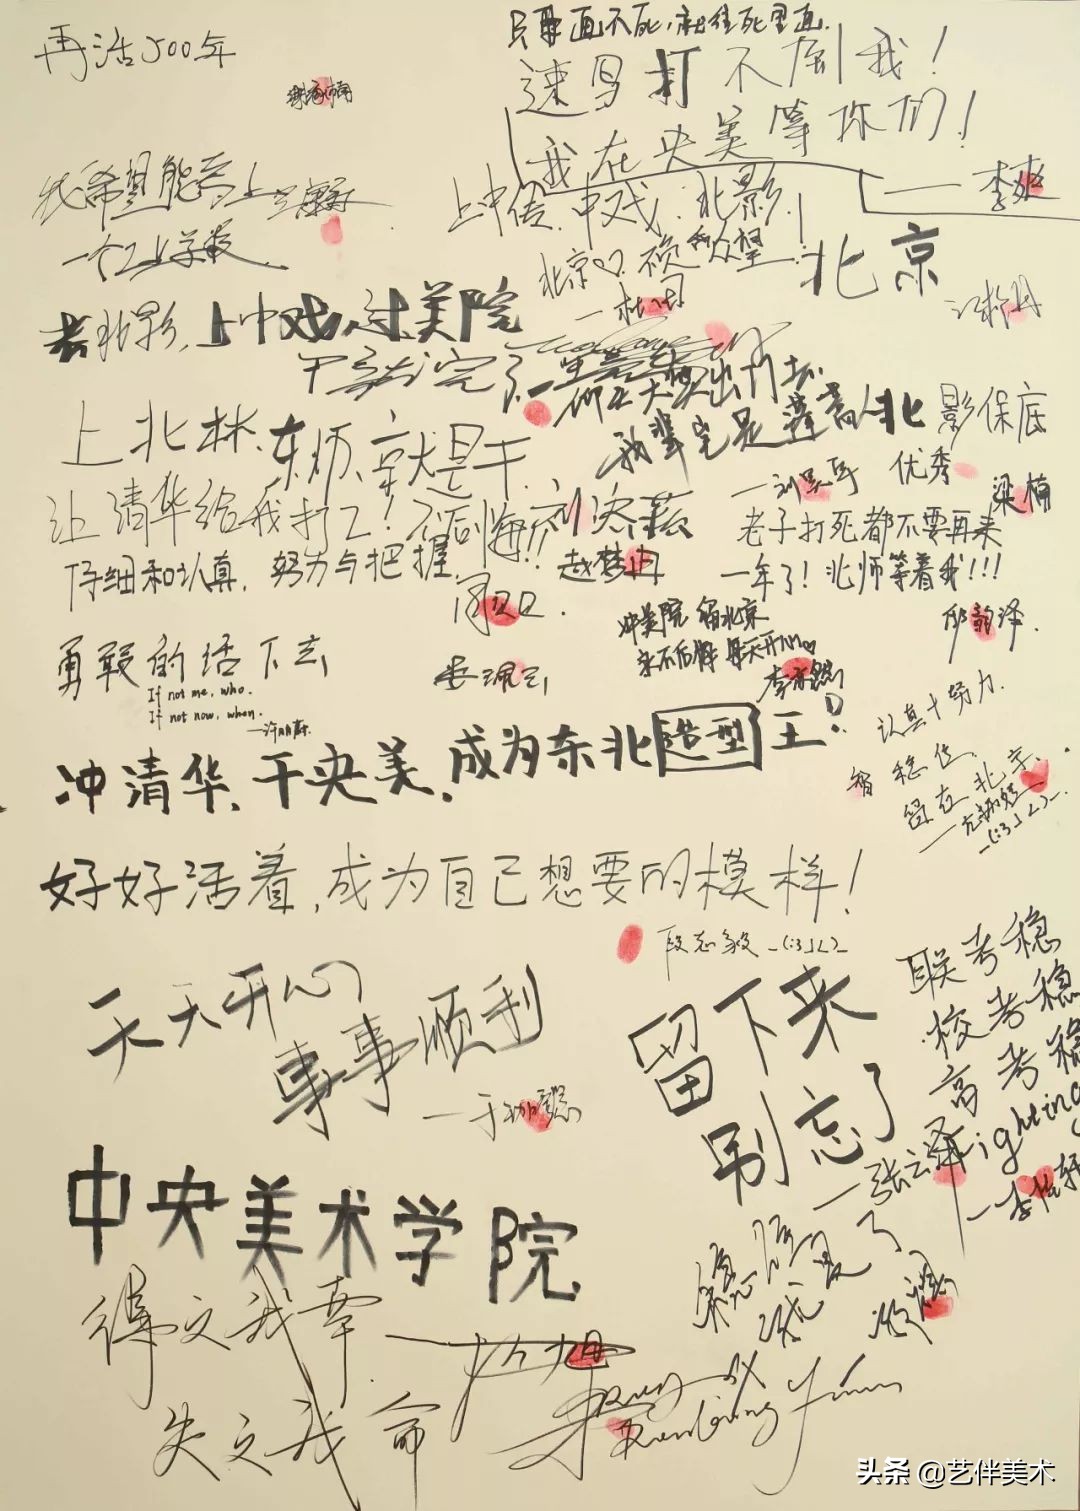 再活500年
只要画不死,就往死里画.
速写打不倒我!
我在央美等你们!
——李爽
我希望能考上
上中传.中戏.北影!
北京♡.不负众望.
北京
去北影,上中戏,过美院
干就完了.
仰天大笑出门去.
我辈岂是蓬蒿人
北影保底
优秀
梁楠
上北林.东师.京就是干.
让清华给我打工!不后悔!!
仔细和认真,努力与把握
老子打死都不要再来
一年了!北师等着我!!!
冲美院 留北京
永不后悔 每天开心♡
勇敢的活下去
If not me, who.
If not now, when.
认真+努力.
稳住.
留在北京.
-(:3」∠)-
冲清华.干央美.成为东北造型王!
好好活着,成为自己想要的模样!
段志毅 -(:3」∠)-
天天开心
事事顺利
留下来
别忘了
—张云泽
联考稳
校考稳
高考稳
Fighting
中央美术学院
得之我幸
失之我命
头条 @艺伴美术